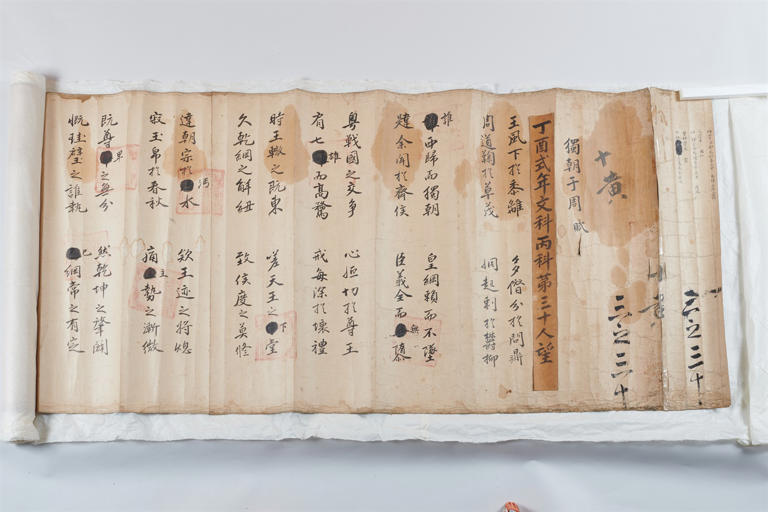 六之三十
十黃
三之三十
獨朝于周賦
丁酉式年文科丙科第三十人望
王風下於黍離 夕僭分於問鼎
周道鞠於草茂 起刺於菀柳
誰西歸而獨朝 皇綱頹而不墜
余聞於齊侯 臣義全而無隳
粤戰國之交爭 心切於尊王
有七雄而高騖 戒每深於壞禮
時王轍之旣東 嗟天王之下堂
久乾綱之解紐 致侯度之莫修
達朝宗於沔水 欽王迹之將熄
寂玉帛於春秋 痛主勢之漸微
旣尊卑之無分 然乾坤之肇闢
慨珪璧之誰執 綱常之有定